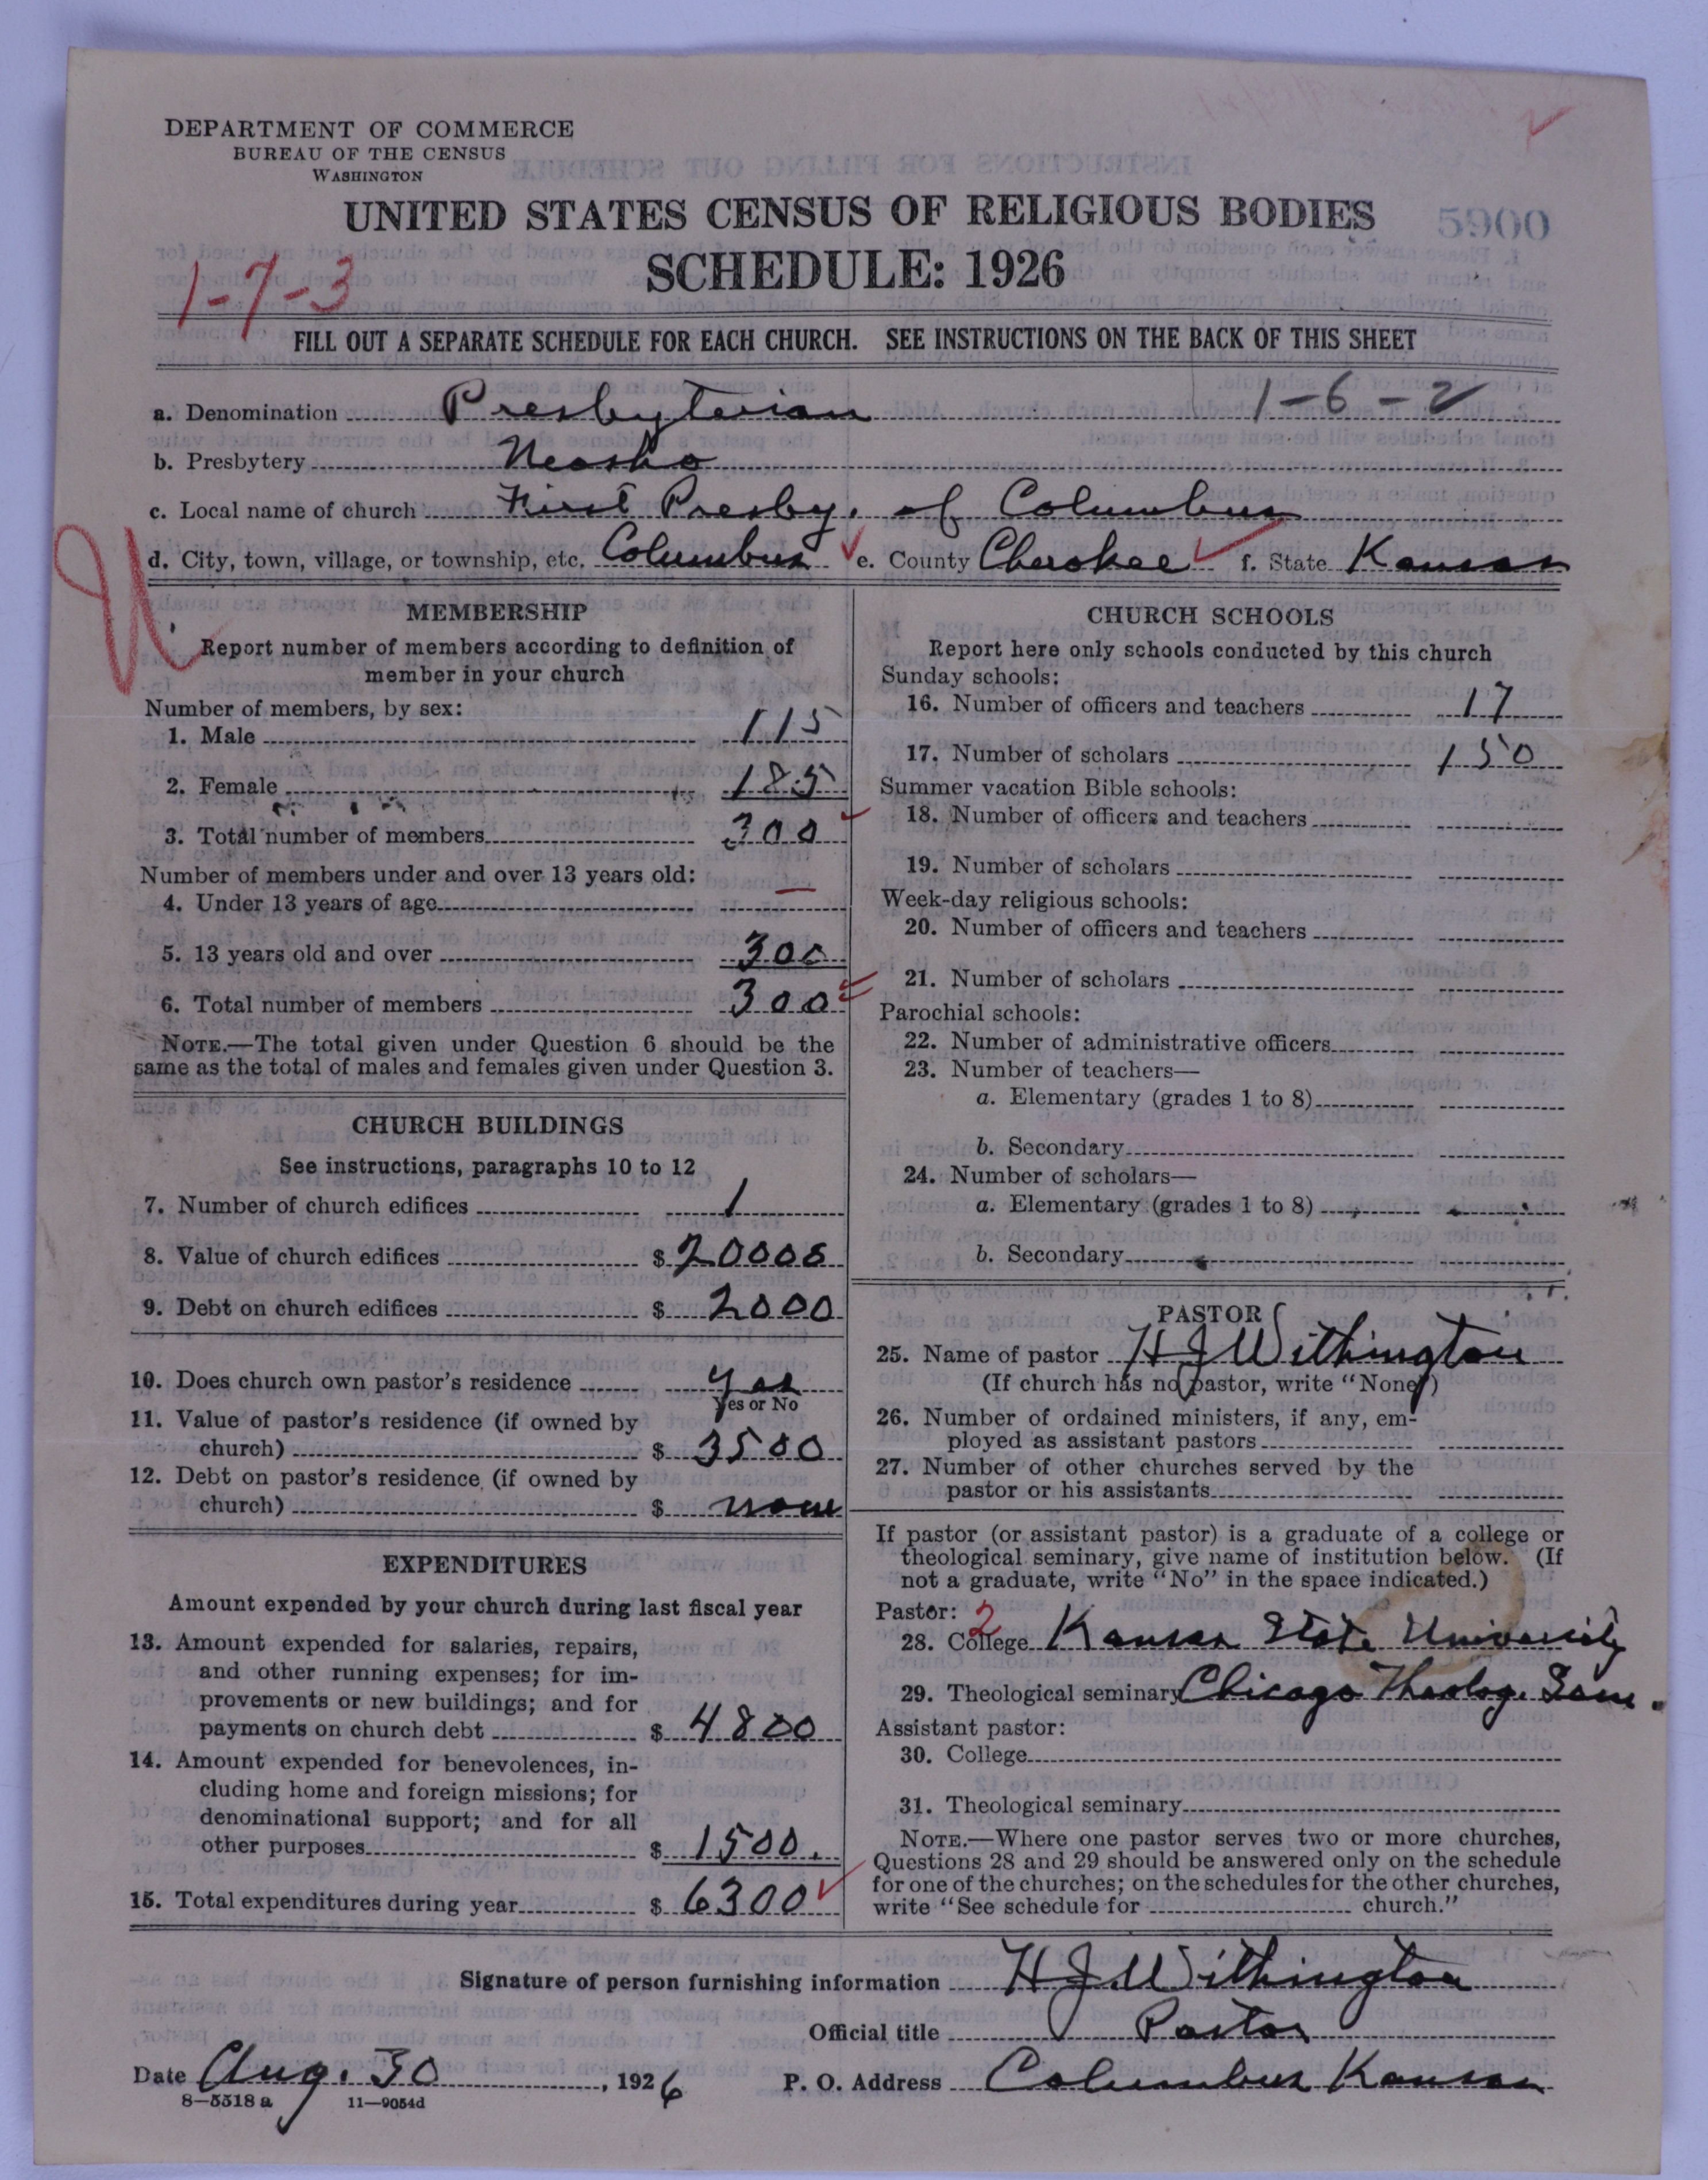 DEPARTMENT OF COMMERCE
BUREAU OF THE CENSUS
WASHINGTON
UNITED STATES CENSUS OF RELIGIOUS BODIES
5900
SCHEDULE: 1926
1-7-3
FILL OUT A SEPARATE SCHEDULE FOR EACH CHURCH. SEE INSTRUCTIONS ON THE BACK OF THIS SHEET
a. Denomination Presbyterian 1-6-2
b. Presbytery Neosho
c. Local name of church First Presby. of Columbus
d. City, town, village, or township, etc. Columbus e. County Cherokee f. State Kansas
MEMBERSHIP
Report number of members according to definition of
member in your church
Number of members, by sex:
1. Male 115
2. Female 185
3. Total number of members 300
Number of members under and over 13 years old:
4. Under 13 years of age —
5. 13 years old and over 300
6. Total number of members 300
NOTE.—The total given under Question 6 should be the
same as the total of males and females given under Question 3.
CHURCH BUILDINGS
See instructions, paragraphs 10 to 12
7. Number of church edifices 1
8. Value of church edifices $ 20000
9. Debt on church edifices $ 2000
10. Does church own pastor's residence yes
Yes or No
11. Value of pastor's residence (if owned by
church) $ 3500
12. Debt on pastor's residence (if owned by
church) $ none
EXPENDITURES
Amount expended by your church during last fiscal year
13. Amount expended for salaries, repairs,
and other running expenses; for im-
provements or new buildings; and for
payments on church debt $ 4800
14. Amount expended for benevolences, in-
cluding home and foreign missions; for
denominational support; and for all
other purposes $ 1500.
15. Total expenditures during year $ 6300
CHURCH SCHOOLS
Report here only schools conducted by this church
Sunday schools:
16. Number of officers and teachers 17
17. Number of scholars 150
Summer vacation Bible schools:
18. Number of officers and teachers
19. Number of scholars
Week-day religious schools:
20. Number of officers and teachers
21. Number of scholars
Parochial schools:
22. Number of administrative officers
23. Number of teachers—
a. Elementary (grades 1 to 8)
b. Secondary
24. Number of scholars—
a. Elementary (grades 1 to 8)
b. Secondary
PASTOR
25. Name of pastor H J Withington
(If church has no pastor, write "None")
26. Number of ordained ministers, if any, em-
ployed as assistant pastors
27. Number of other churches served by the
pastor or his assistants
If pastor (or assistant pastor) is a graduate of a college or
theological seminary, give name of institution below. (If
not a graduate, write "No" in the space indicated.)
Pastor: 2
28. College Kansas State University
29. Theological seminary Chicago Theolog. Sem.
Assistant pastor:
30. College
31. Theological seminary
NOTE.—Where one pastor serves two or more churches,
Questions 28 and 29 should be answered only on the schedule
for one of the churches; on the schedules for the other churches,
write "See schedule for church."
Signature of person furnishing information H J Withington
Official title Pastor
Date Aug. 30, 1926 P. O. Address Columbus Kansas
8—5518 a 11—9054d